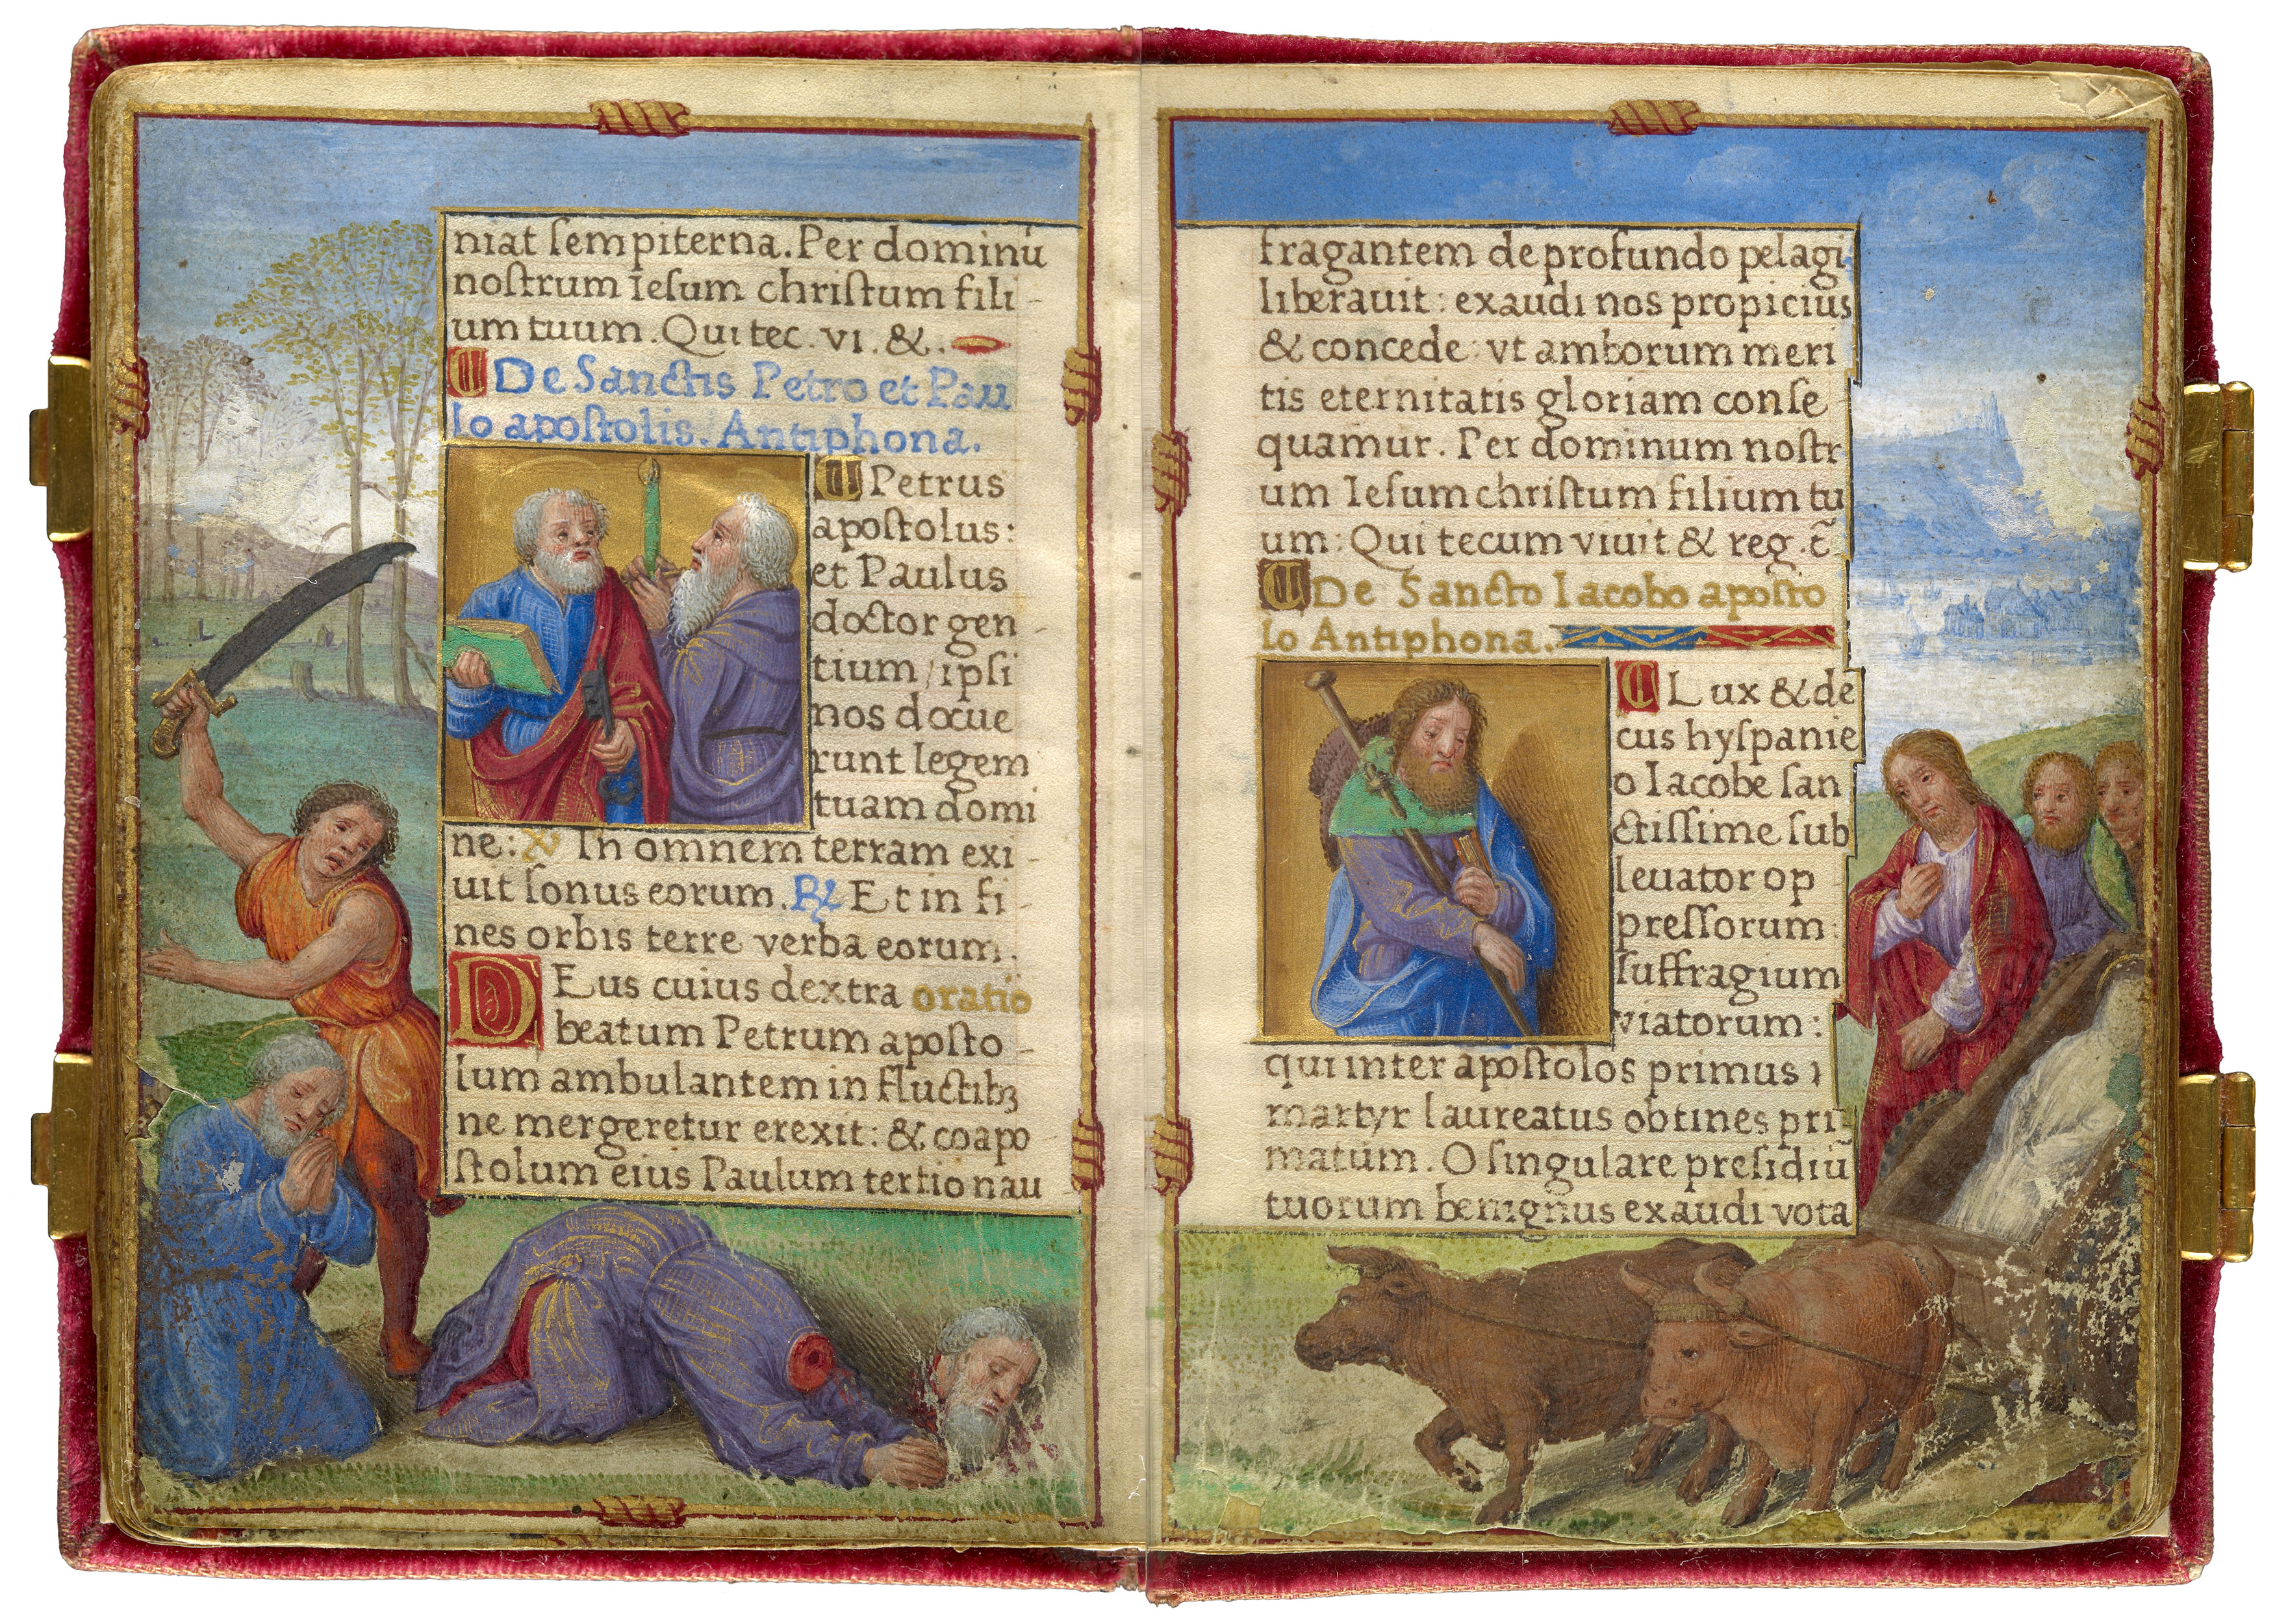 niat ſempiterna. Per dominū
noſtrum Ieſum chriſtum fili-
um tuum. Qui tec. vi. &.
De Sanctis Petro et Pau
lo apoſtolis. Antiphona.
Petrus
apoſtolus:
et Paulus
doctor gen-
tium / ipſi
nos docue
runt legem
tuam domi
ne: ℣ In omnem terram exi-
uit ſonus eorum. ℟ Et in fi-
nes orbis terre verba eorum.
DEus cuius dextra oratio
beatum Petrum apoſto-
lum ambulantem in fluctibꝫ
ne mergeretur erexit: & coapo-
ſtolum eius Paulum tertio nau
fragantem de profundo pelagi
liberauit: exaudi nos propicius
& concede: vt amborum meri
tis eternitatis gloriam conſe
quamur. Per dominum noſtr
um Ieſum chriſtum filium tu
um: Qui tecum viuit & reg. c̄
De Sancto Iacobo apoſto
lo Antiphona.
Lux & de
cus hyſpanie
o Iacobe ſan
ctiſſime ſub
leuator op
preſſorum:
ſuffragium
viatorum:
qui inter apoſtolos primus
martyr laureatus obtines pri
matum. O ſingulare preſidiū
tuorum benignus exaudi vota